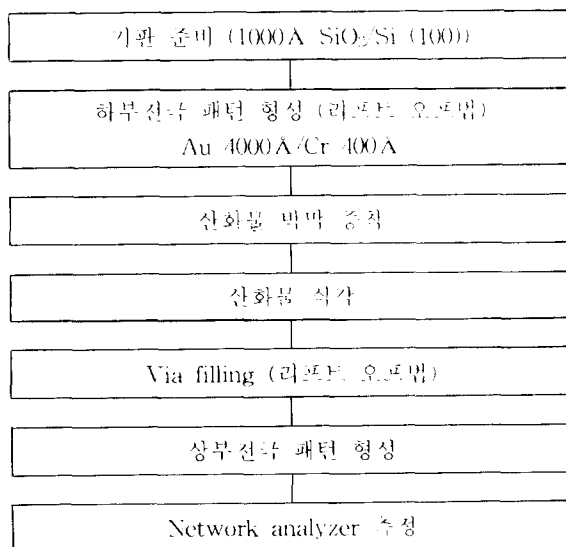 기판 준비 (1000Å SiO₂/Si (100))
하부전극 패턴 형성 (리프트 오프법)
Au 4000Å/Cr 400Å
산화물 박막 증착
산화물 식각
Via filling (리프트 오프법)
상부전극 패턴 형성
Network analyzer 측정